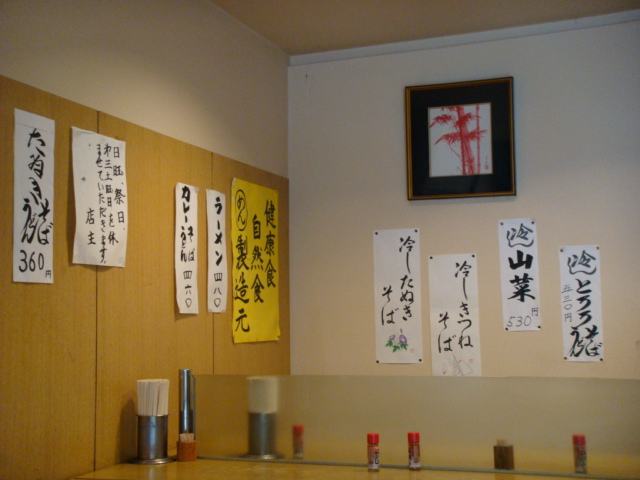 たぬき
そば
うどん
360円
日曜、祭日、
第三土曜日を休
ませていただきます。
店主
カレー
そば
うどん
四六〇
ラーメン 四八〇
健康食
自然食
めん製造元
冷したぬき
そば
冷しきつね
そば
冷し
山菜
530円
冷し
とろろ
そば
うどん
五三〇円